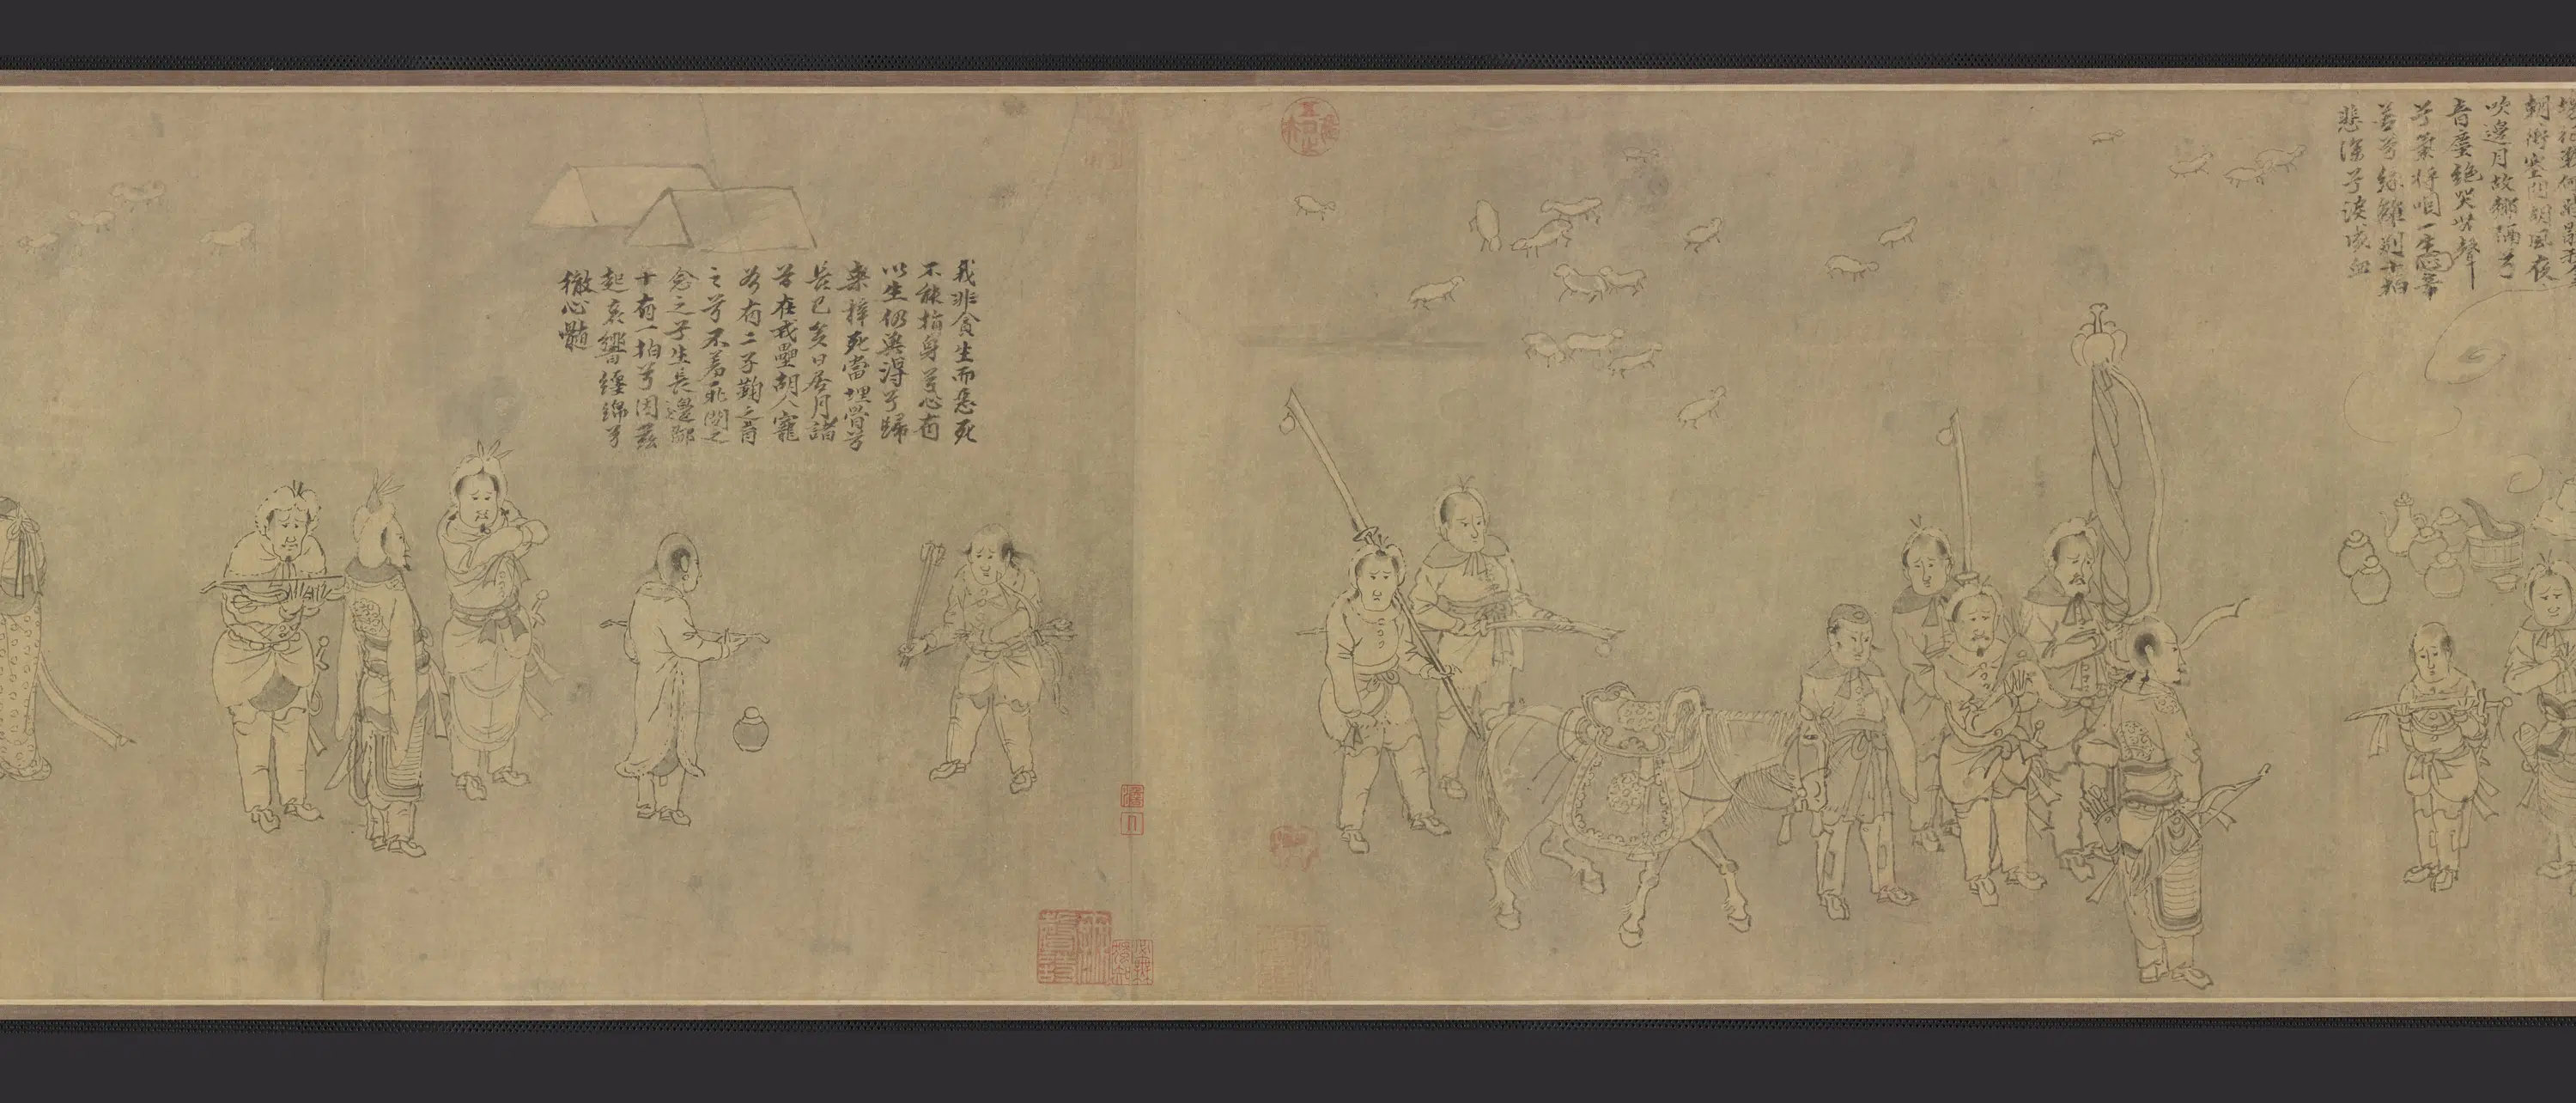 朝衝塞門胡風夜
吹邊月故鄉隔兮
音塵絕哭無聲
兮氣將咽一生辛
苦兮緣離別十拍
悲深兮淚成血
我非貪生而惡死
不能捐身兮心有
以生仍冀得兮歸
桑梓死當埋骨兮
長已矣日居月諸
兮在戎壘胡人寵
兮有二子鞠之育
之兮不羞恥閔之
念之兮生長邊鄙
十有一拍兮因茲
起哀響纏綿兮
徹心髓